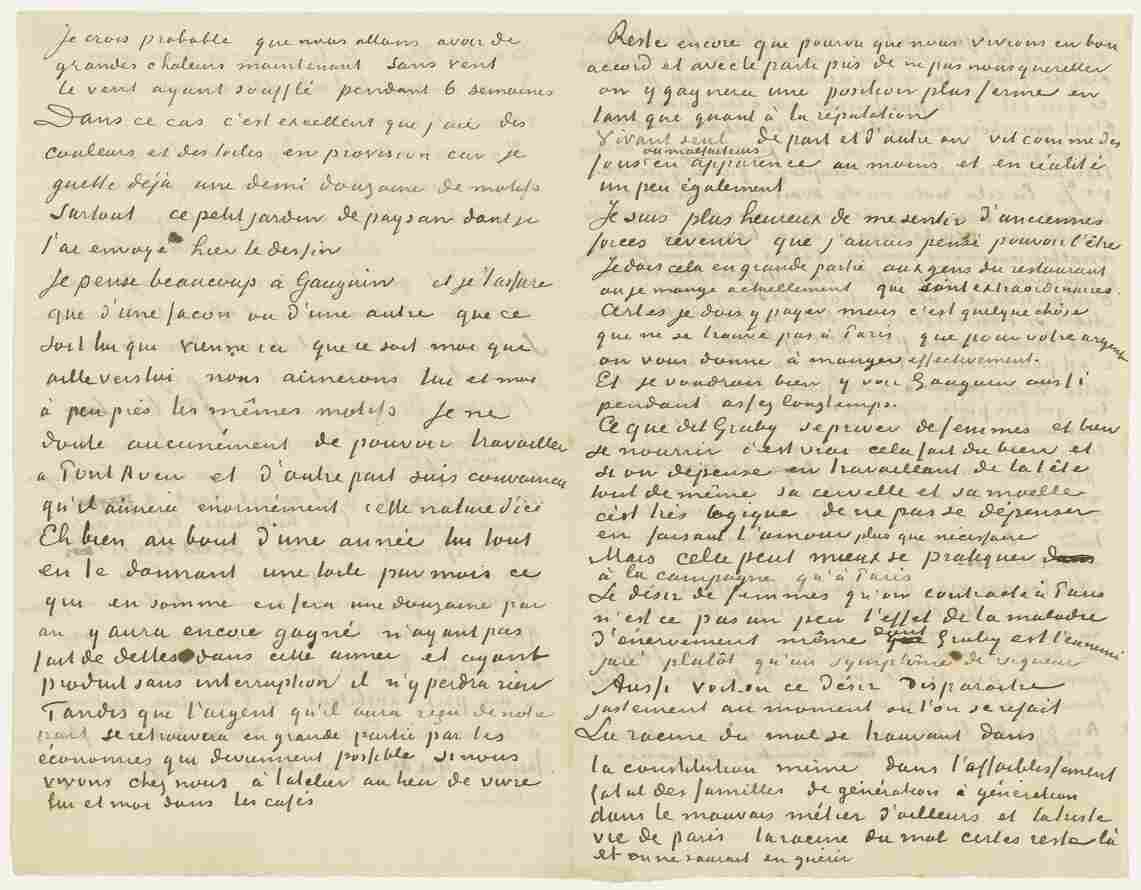 Je crois probable que nous allons avoir de
grandes chaleurs maintenant sans vent
le vent ayant soufflé pendant 6 semaines
Dans ce cas c'est excellent que j'aie des
couleurs et des toiles en provision car je
guette déjà une demi douzaine de motifs
surtout ce petit jardin de paysan dont je
t'ai envoyé hier le dessin
Je pense beaucoup à Gauguin et je t'assure
que d'une façon ou d'une autre que ce
soit lui qui vienne ici que ce soit moi que
aille vers lui nous aimerons lui et moi
à peu près les mêmes motifs Je ne
doute aucunément de pouvoir travailler
a Pont Aven et d'autre part suis convaincu
qu'il aimera enormément cette nature d'ici
Eh bien au bout d'une année lui tout
en te donnant une toile par mois ce
qui en somme en fera une douzaine par
an y aura encore gagné n'ayant pas
fait de dettes dans cette année et ayant
produit sans interruption il n'y perdra rien
Tandis que l'argent qu'il aura reçu de notre
part se retrouvera en grande partie par les
économies qui deviennent possible si nous
vivons chez nous à l'atelier au lieu de vivre
lui et moi dans les cafés
Reste encore que pourvu que nous vivions en bon
accord et avec le parti pris de ne pas nous quereller
on y gagnera une position plus ferme en
tant que quant à la réputation
Vivant seul de part et d'autre on vit comme des
ou malfaiteurs
fous en apparence au moins et en réalité
un peu également
Je suis plus heureux de me sentir d'anciennes
forces revenir que j'aurais pensé pouvoir l'être
Je dois cela en grande partie aux gens du restaurant
ou je mange actuellement qui sont extraordinaires.
Certes je dois y payer mais c'est quelque chôse
que ne se trouve pas à Paris que pour votre argent
on vous donne à manger effectivement.
Et je voudrais bien y voir Gauguin aussi
pendant assez longtemps.
Ce que dit Gruby se priver de femmes et bien
se nourrir c'est vrai cela fait du bien et
si on dépense en travaillant de la tête
tout de même sa cervelle et sa moelle
c'est très logique de ne pas se dépenser
en faisant l'amour plus que necessaire
Mais cela peut mieux se pratiquer dans
à la campagne qu'à Paris
Le désir de femmes qu'on contracte à Paris
n'est ce pas un peu l'effet de la maladie
d'enervement même dont Gruby est l'ennemi
juré plutôt qu'un symptôme de vigueur
Aussi voit on ce désir disparaitre
justement au moment où l'on se refait
La racine du mal se trouvant dans
la constitution même dans l'affaiblissement
fatal des familles de génération à génération
dans le mauvais métier d'ailleurs et la triste
vie de paris la racine du mal certes reste là
et on ne saurait en guérir